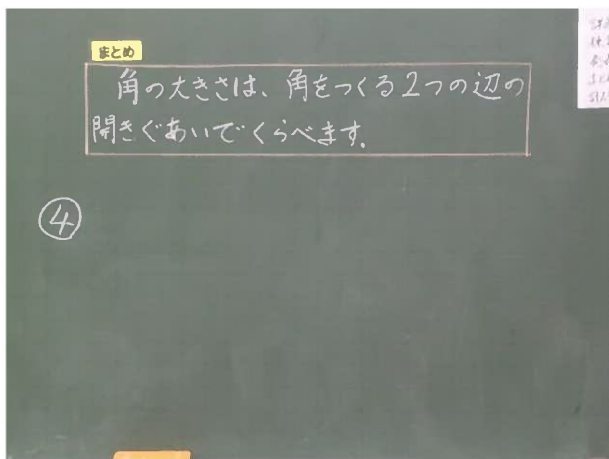 まとめ
角の大きさは、角をつくる2つの辺の
開きぐあいでくらべます。
④